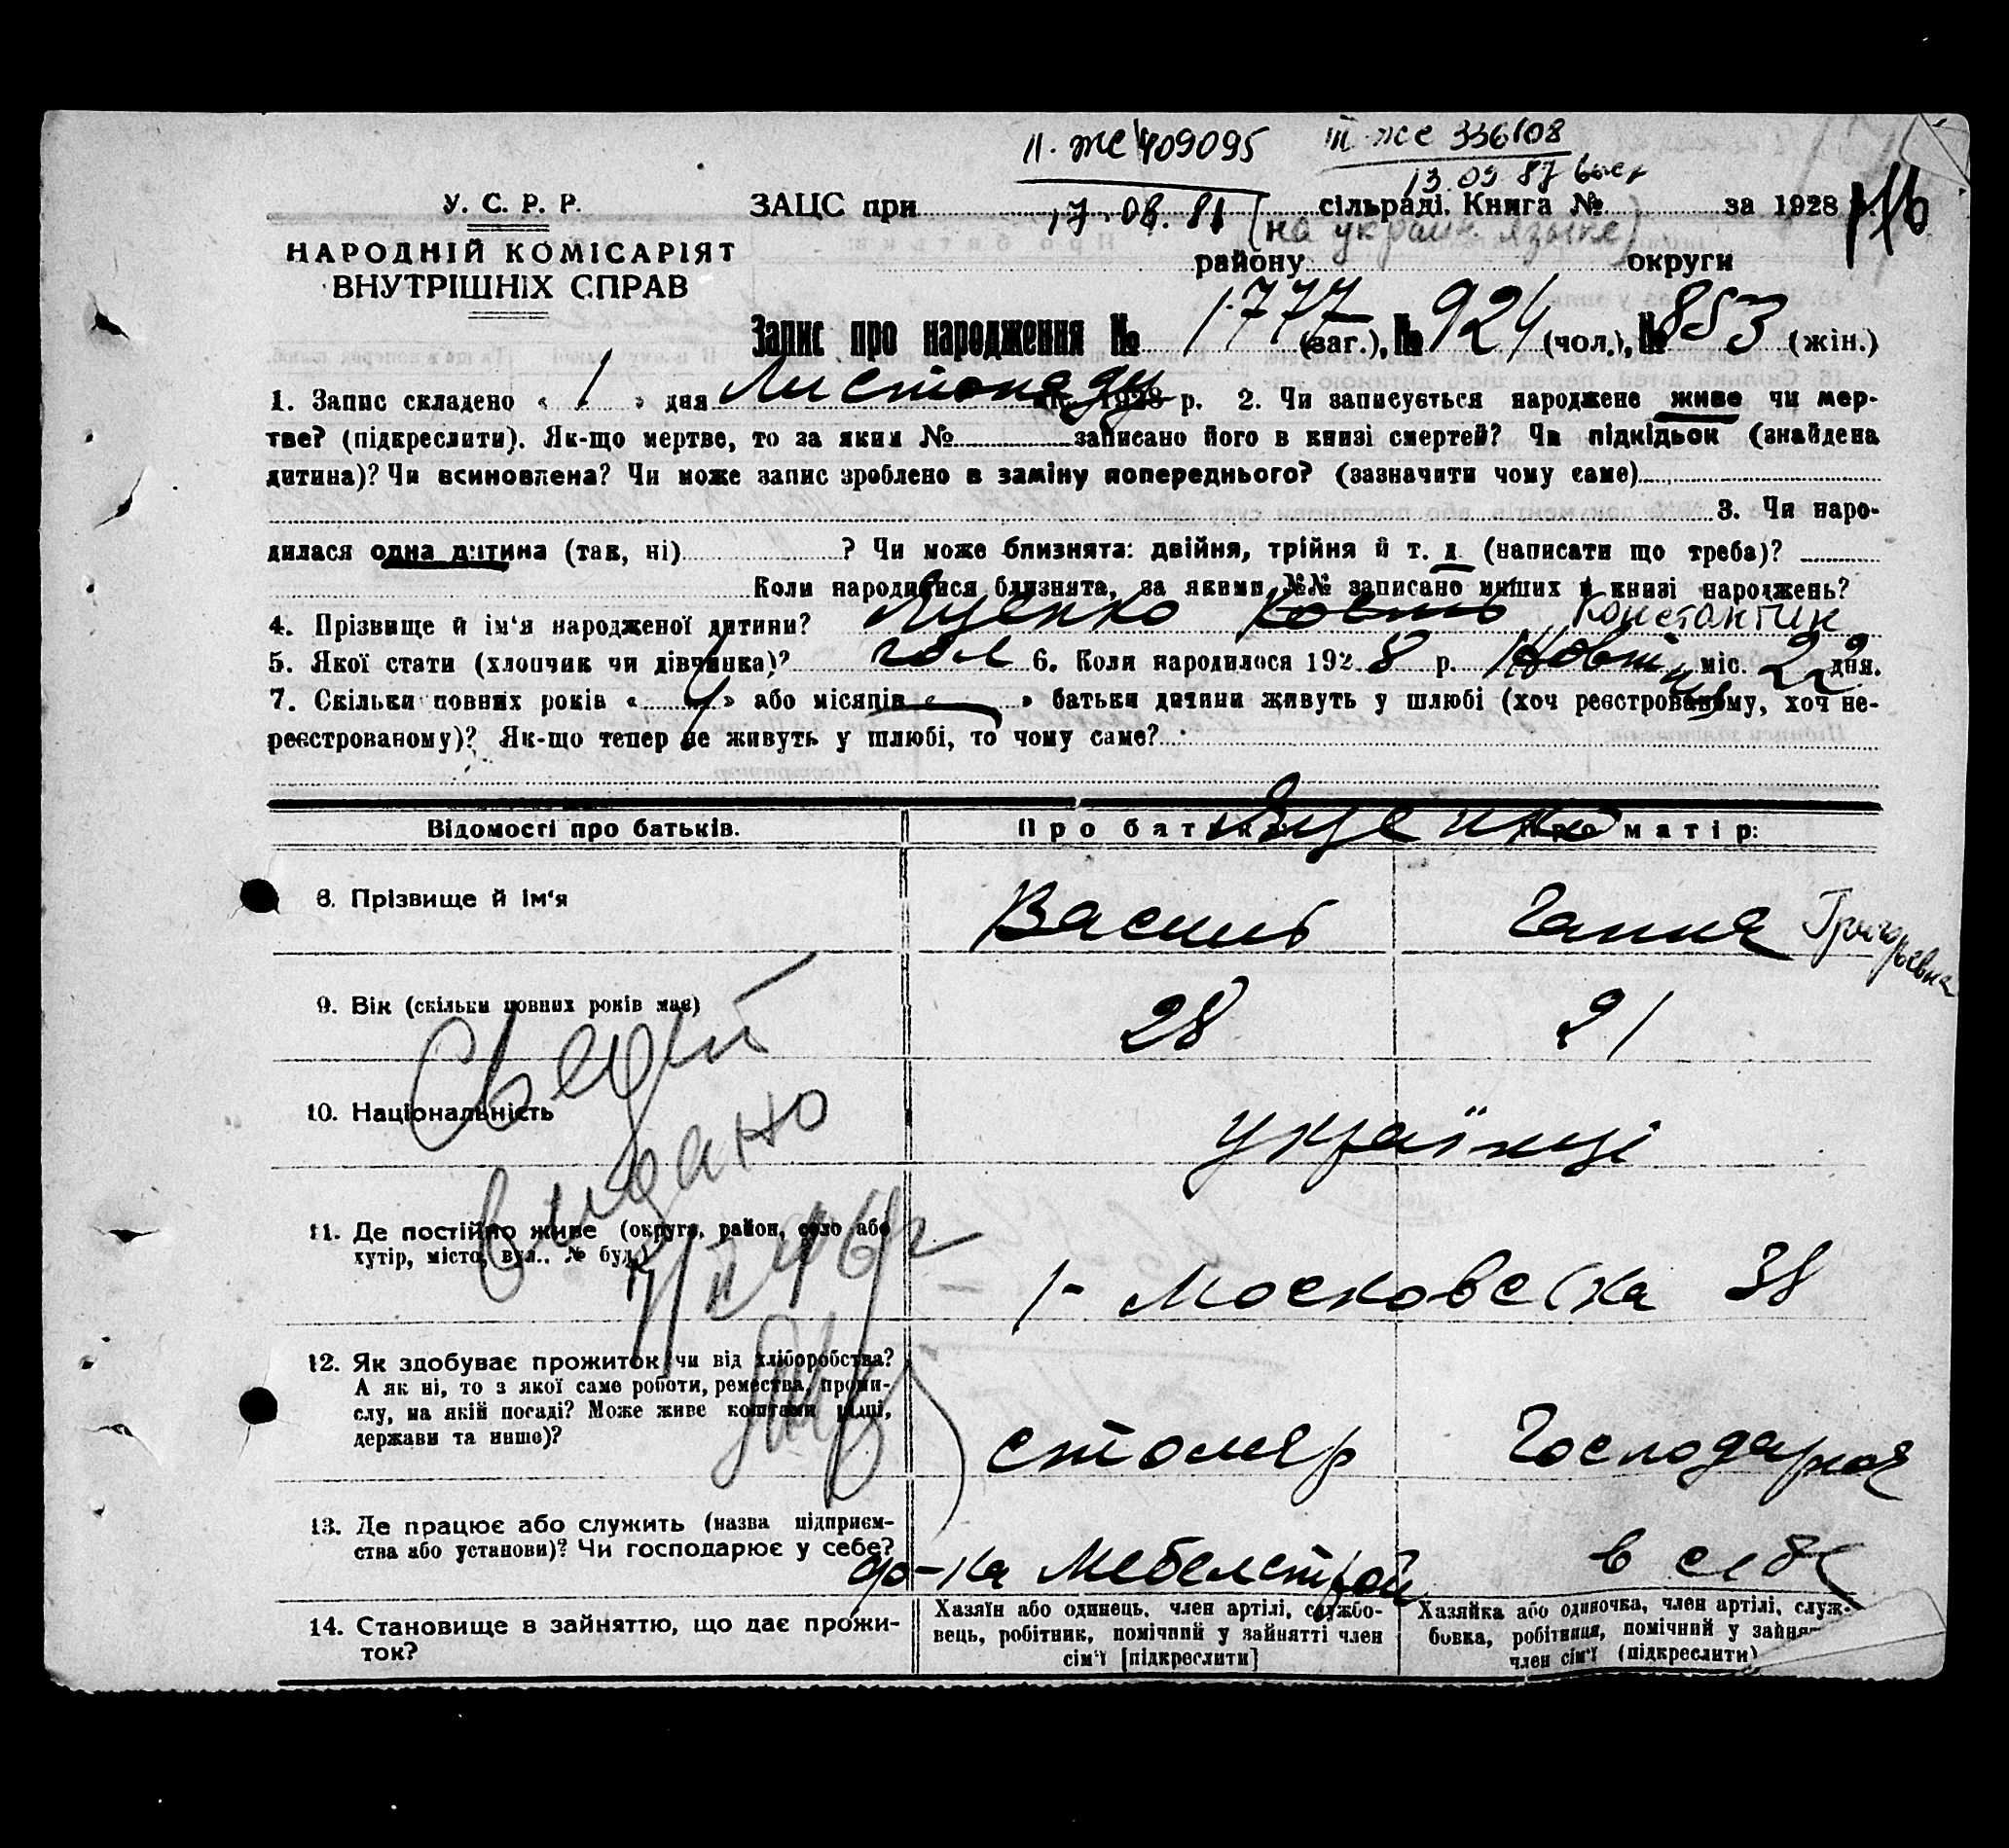 II. ЖЕ 409095 III-ЖЕ 336108
17.08.81 13.09 87
У. С. Р. Р. ЗАЦС при сільраді. Книга № за 1928 р.
(на украин. языке)
НАРОДНІЙ КОМІСАРІЯТ району округи
ВНУТРІШНІХ СПРАВ
Запис про народження № 1777 (заг.), № 924 (чол.), № 853 (жін.)
1. Запис складено « 1 » дня Листопаду 1928 р. 2. Чи записується народжене живе чи мер-
тве? (підкреслити). Як-що мертве, то за яким № записано його в книзі смертей? Чи підкідьок (знайдена
дитина)? Чи всиновлена? Чи може запис зроблено в заміну попереднього? (зазначити чому саме)
3. Чи наро-
дилася одна дитина (так, ні) ? Чи може близнята: двійня, трійня й т. д. (написати що треба)?
Коли народилися близнята, за якими №№ записано инших в книзі народжень?
4. Прізвище й ім'я народженої дитини? Яценко Кость Константин
5. Якої стати (хлопчик чи дівчинка)? чол 6. Коли народилося 1928 р. Жовтня міс. 22 дня.
7. Скільки повних років « » або місяців « » батьки дитини живуть у шлюбі (хоч реєстрованому, хоч не-
реєстрованому)? Як-що тепер не живуть у шлюбі, то чому саме?
Відомості про батьків. Про батька: Про матір:
Яценко
8. Прізвище й ім'я Василь Ганна Григорьевна
9. Вік (скільки повних років має) 28 21
Свідот
10. Національність українці
видано
11. Де постійно живе (округа, район, село або
хутір, місто, вул., № буд.) 1-Московська 38
7/II 46р
12. Як здобуває прожиток чи від хліборобства?
А як ні, то з якої саме роботи, ремества, проми-
слу, на якій посаді? Може живе коштами рідні,
держави та инше)? столяр Господарка
13. Де працює або служить (назва підприєм-
ства або установи)? Чи господарює у себе? ф-ка Мебельстрой в себе
14. Становище в зайняттю, що дає прожи-
ток?
Хазяїн або одинець, член артілі, службо-
вець, робітник, помічний у зайнятті член
сім'ї [підкреслити]
Хазяйка або одиночка, член артілі, служ-
бовка, робітниця, помічний у
член сім'ї (підкреслити)